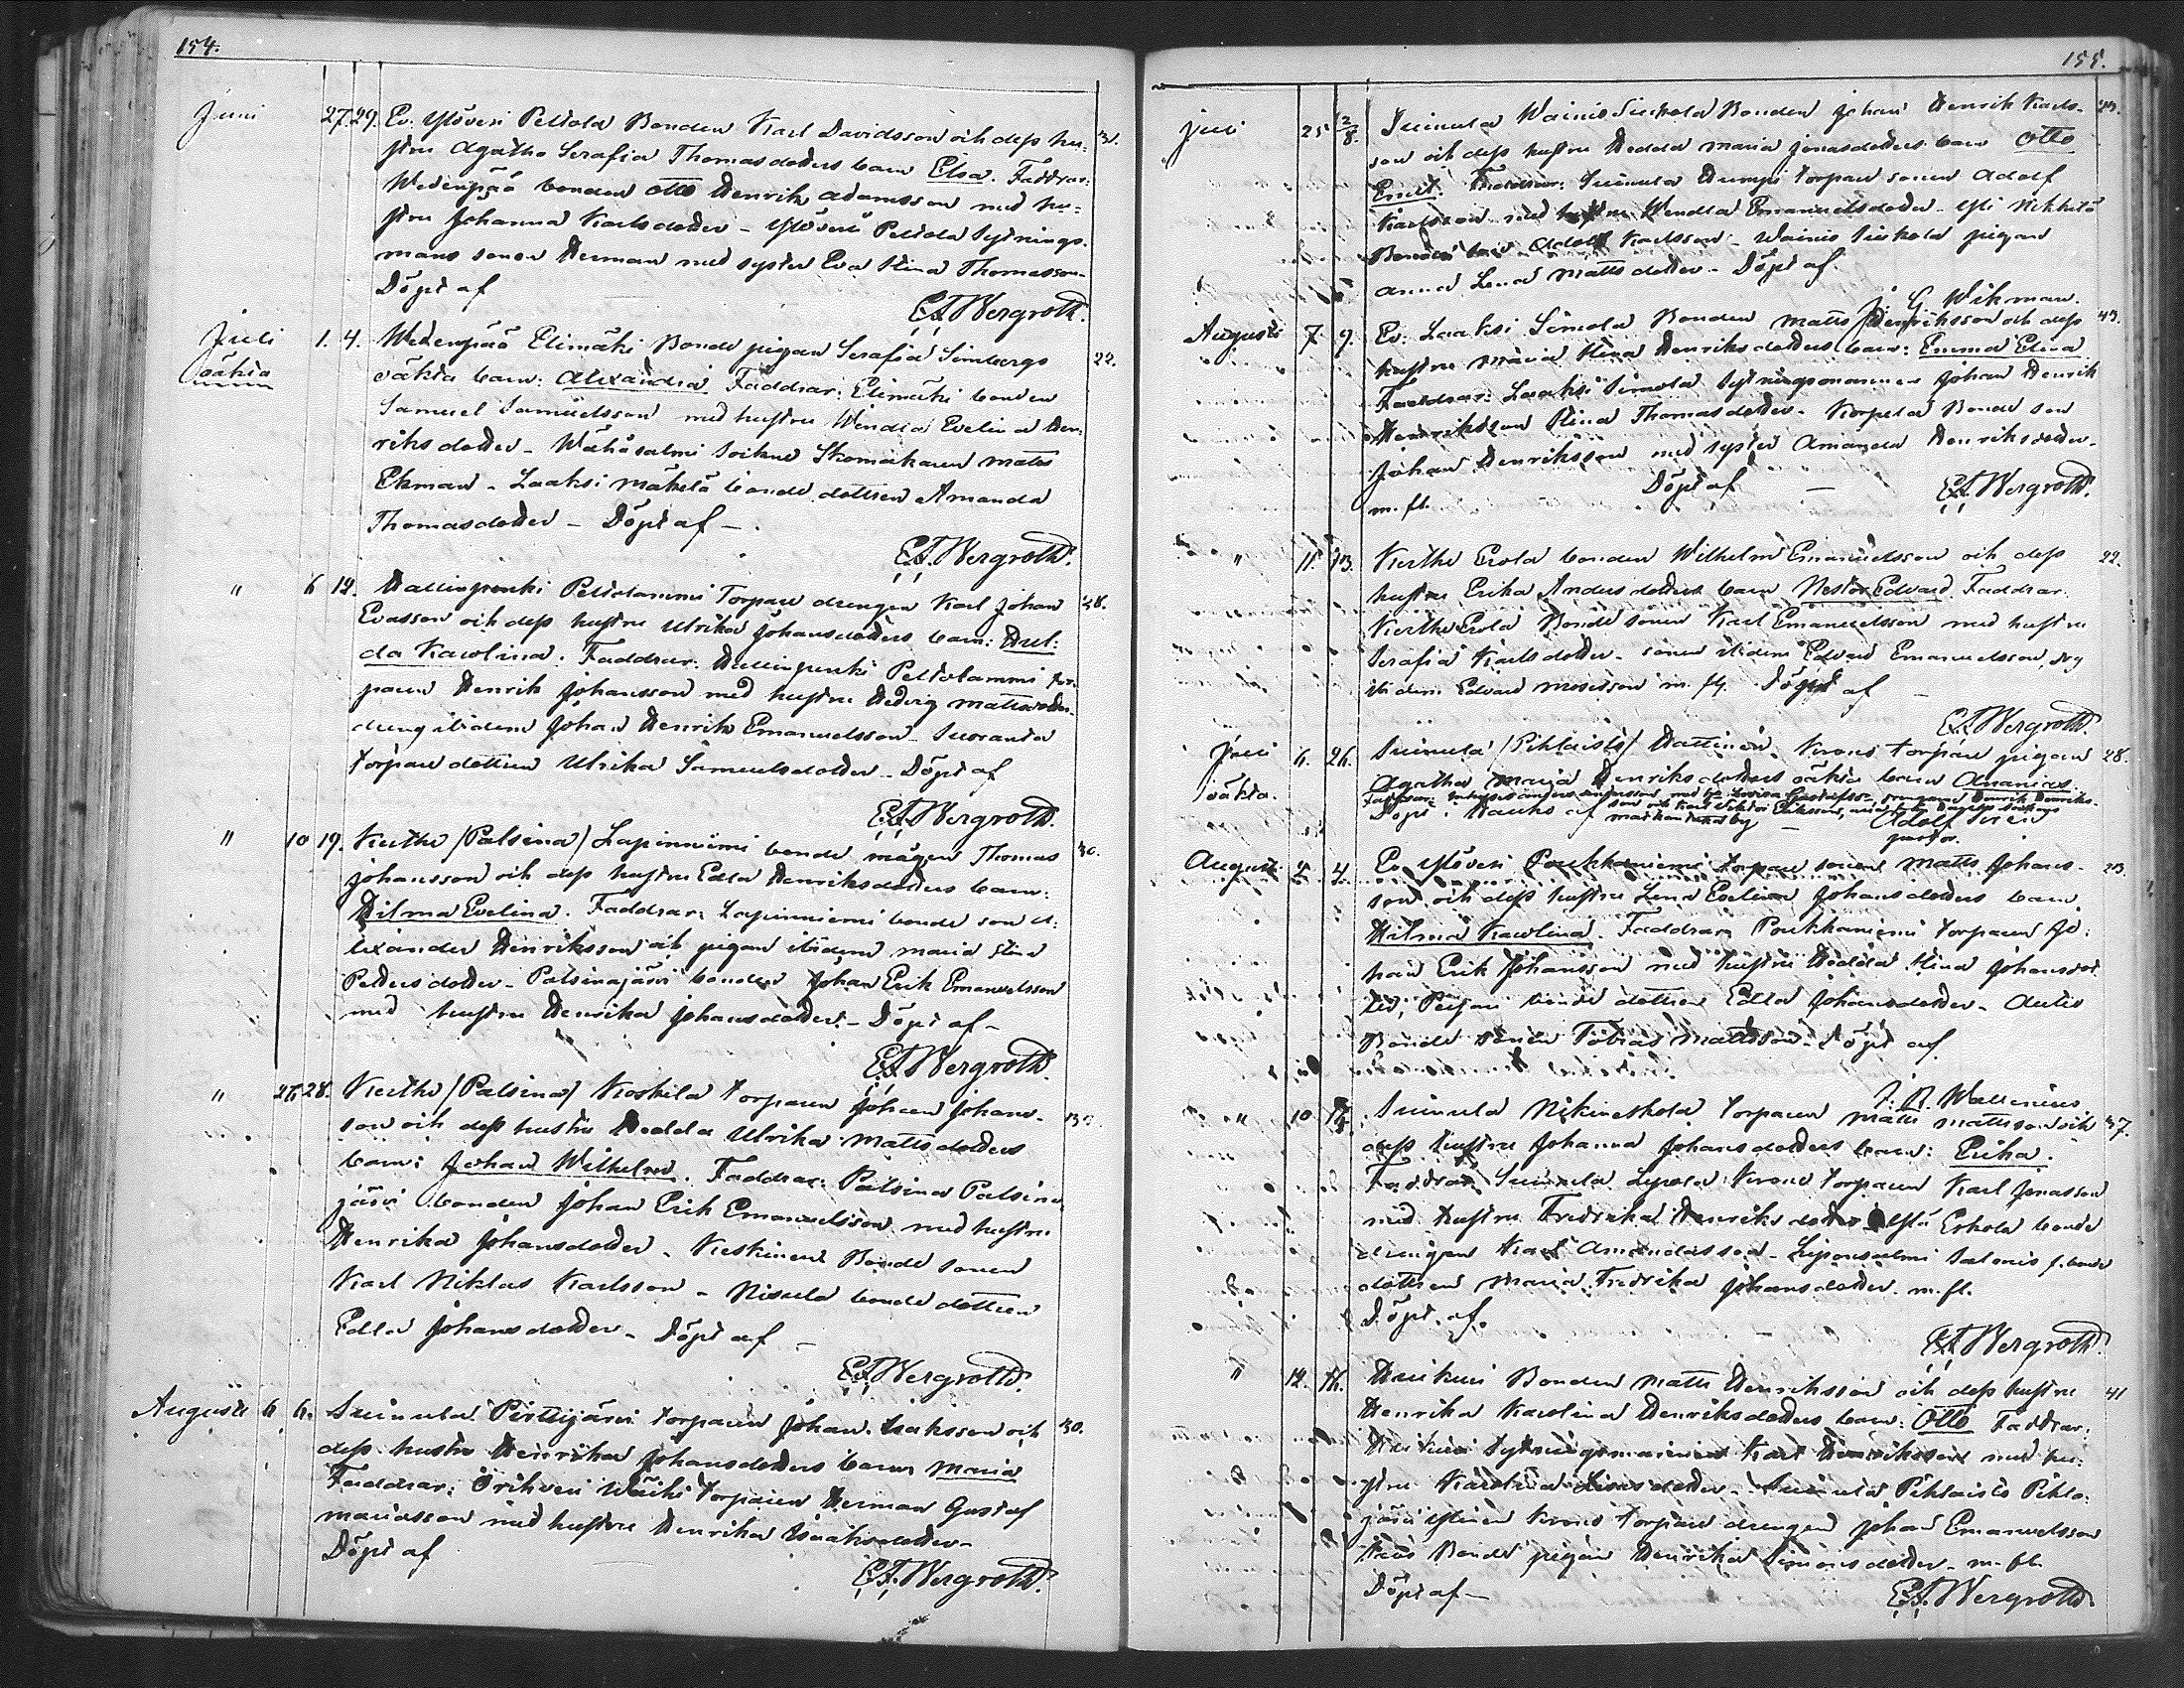 154.
Juni 27. 29. Ev. Ylöveri Peltola Bonden Karl Davidsson och dess hu- 31.
stru Agatha Serafia Thomasdotters barn Elsa. Faddrar:
Wedenpää bonden Otto Henrik Adamsson med hu-
stru Johanna Karlsdotter – Ylöveri Peltola Sytnings-
mans sonen Herman med syster Eva Stina Thomasson-
Döpt af
E.A. Bergroth.
Juli 1. 4. Wedenpää Elimäki Bonde pigan Serafia Simbergs 22.
oäkta
oäkta barn: Alexandra Faddrar: Elimäki bonden
Samuel Samuelsson med hustru Wendla Evelina Hen-
riksdotter – Wähäsalmi Skomakaren Matts
Ekman – Laaksi Mäkelä bonde dottren Amanda
Thomasdotter – Döpt af –
E.A. Bergroth.
" 6 12. Peltolammi Torpare drengen Karl Johan 28.
Evasson och dess hustru Ulrika Johansdotters barn: Hul-
da Karolina. Faddrar: Peltolammi tor-
paren Henrik Johansson med hustru Hedvig Mattsdotter-
dreng ibidem Johan Henrik Emanuelsson – Suoranta
torpare dottren Ulrika Samuelsdotter – Döpt af
E.A. Bergroth.
" 10 19. Kurtho /Palsina/ Lapinniemi bonde mågen Thomas 30.
Johansson och dess hustru Edla Henriksdotters barn:
Hilma Evelina. Faddrar: Lapinniemi bonde son A-
lexander Henriksson och pigan ibidem Maria Stina
Petersdotter – Palsinajärvi bonden Johan Erik Emanuelsson
med hustru Henrika Johansdotter. – Döpt af –
E.A. Bergroth.
" 26 28. Kurtho /Palsina/ Koskela torparen Johan Johans-
son och dess hustru Hedda Ulrika Mattsdotters
barn: Johan Wilhelm. Faddrar: Palsina Palsina
järvi bonden Johan Erik Emanuelsson med hustru
Henrika Johansdotter – Keskinen Bonde sonen
Karl Niklas Karlsson – Nisula bonde dottren
Edla Johansdotter – Döpt af –
E.A. Bergroth.
Augusti 6 6. Suinula Pirttijärvi torparen Johan Isaksson och 30.
dess hustru Henrika Johansdotters barn Maria
Faddrar: Orihvesi torparen Herman Gustaf
Mariasson med hustru Henrika Isaaksdotter –
Döpt af
E.A. Bergroth.
155.
Juli 25 2/8. Suinula Wainio Bonden Johan Henrik Karls-
son och dess hustru Hedda Maria Jonasdotters barn Otto
Emil. Faddrar: Suinula torpare sonen Adolf
Karlsson med hustru Wendla Emanuelsdotter – Yli
Adolf Karlsson – Wainio pigan
Anna Lena Mattsdotter – Döpt af
J. G. Wikman.
Augusti 7. 9. Ev. Laaksi Simola Bonden Matts Henriksson och dess 43.
hustru Maria Stina Henriksdotters barn: Emma Elina
Faddrar: Laaksi Simola Sytningsmannen Johan Henrik
Henriksson Stina Thomasdotter – Korpela Bonde son
Johan Henriksson med syster Amanda Henriksdotter –
m. fl. Döpt af – E.A. Bergroth.
" 11. 13. Kurtho Erola bonden Wilhelm Emanuelsson och dess 22.
hustru Erika Andersdotters barn Nestor Edvard. Faddrar:
Kurtho Erola Bonde sonen Karl Emanuelsson med hustru
Serafia Karlsdotter – sonen ibidem Edvard Emanuelsson, drg
ibidem Edvard Mosesson m. fl. Döpt af –
E.A. Bergroth.
Juli 6. 26. Suinula /Pihlaisto/ Krono torpare pigan 28.
oäkta.
Agatha Maria Henriksdotters oäkta barn Ananias.
Döpt af Adolf
pastor.
August. 2 4. Ev. Ylöveri Poukkaniemi torpare sonen Matts Johans-
son och dess hustru Lena Evelina Johansdotters barn
Hilma Karolina. Faddrar: Poukkaniemi torparen Jo-
han Erik Johansson med hustru Hedda Stina Johansdot-
ter, bonde dottren Edla Johansdotter –
Bonde sonen Tobias Mattsson – Döpt af
Wallenius
" 10. Suinula torparen Matts Mattsson och 37.
dess hustru Johanna Johansdotters barn: Erika.
Faddrar: Suinula Krono torparen Karl Jonasson
med hustru Fredrika Henriksdotter – Erkola bonde
drengen Karl Amandasson – f. bonde
dottren Maria Fredrika Johansdotter. m. fl.
Döpt af.
E.A. Bergroth.
" 12. 16. Bonden Matts Henriksson och dess hustru 41
Henrika Karolina Henriksdotters barn: Otto Faddrar:
Sytningsmannen Karl Henriksson med hu-
stru Karolina – Suinula Pihlaisto Pihla-
järvi Krono torpare drengen Johan Emanuelsson
Bonde pigan Henrika Simonsdotter – m. fl.
Döpt af –
E.A. Bergroth.